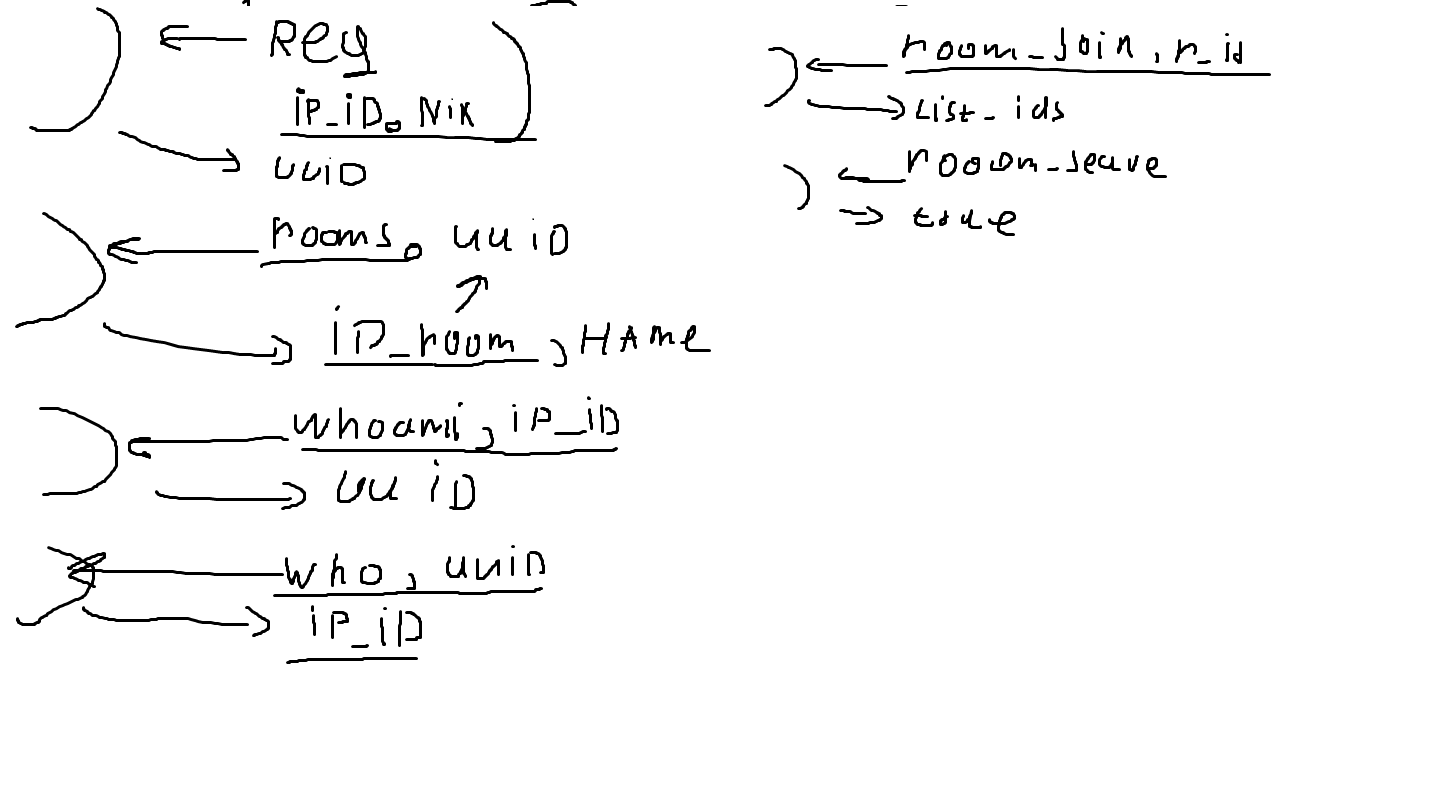 Reg
iP_iD, Nik
uuiD
rooms, uuiD
iD_room, HAme
whoami, iP_iD
uuiD
who, uuiD
iP_iD
room_join, r_id
List_ids
rooom_leave
true